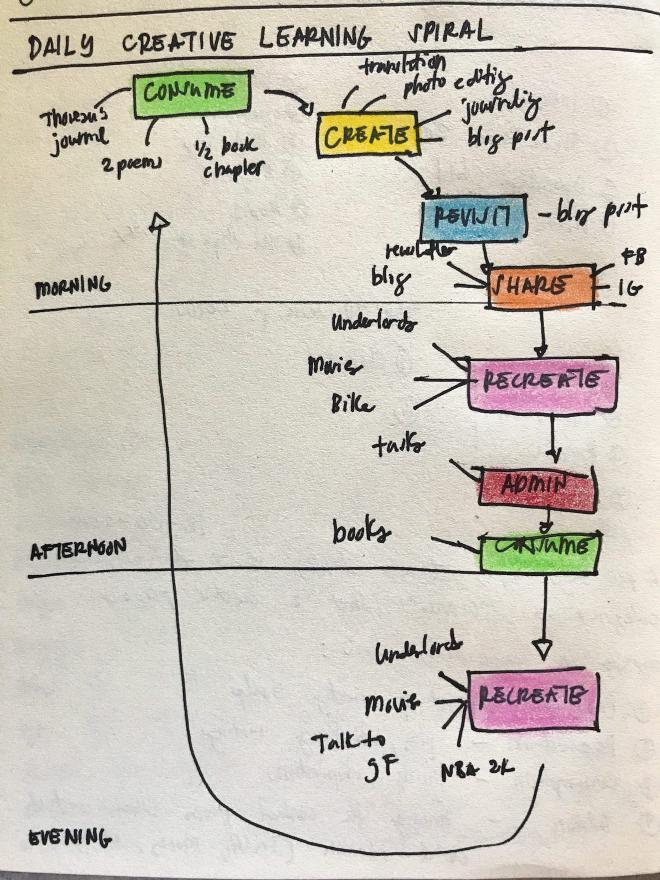 DAILY CREATIVE LEARNING SPIRAL
CONSUME
Thoreau's
journal
2 poems
1/2 book
chapter
CREATE
translation
photo editing
journaling
blog post
REVISIT
blog post
SHARE
newsletter
blog
FB
IG
MORNING
RECREATE
Underlords
Movies
Bike
ADMIN
tasks
CONSUME
books
AFTERNOON
RECREATE
Underlords
Movie
Talk to
gF
NBA 2K
EVENING